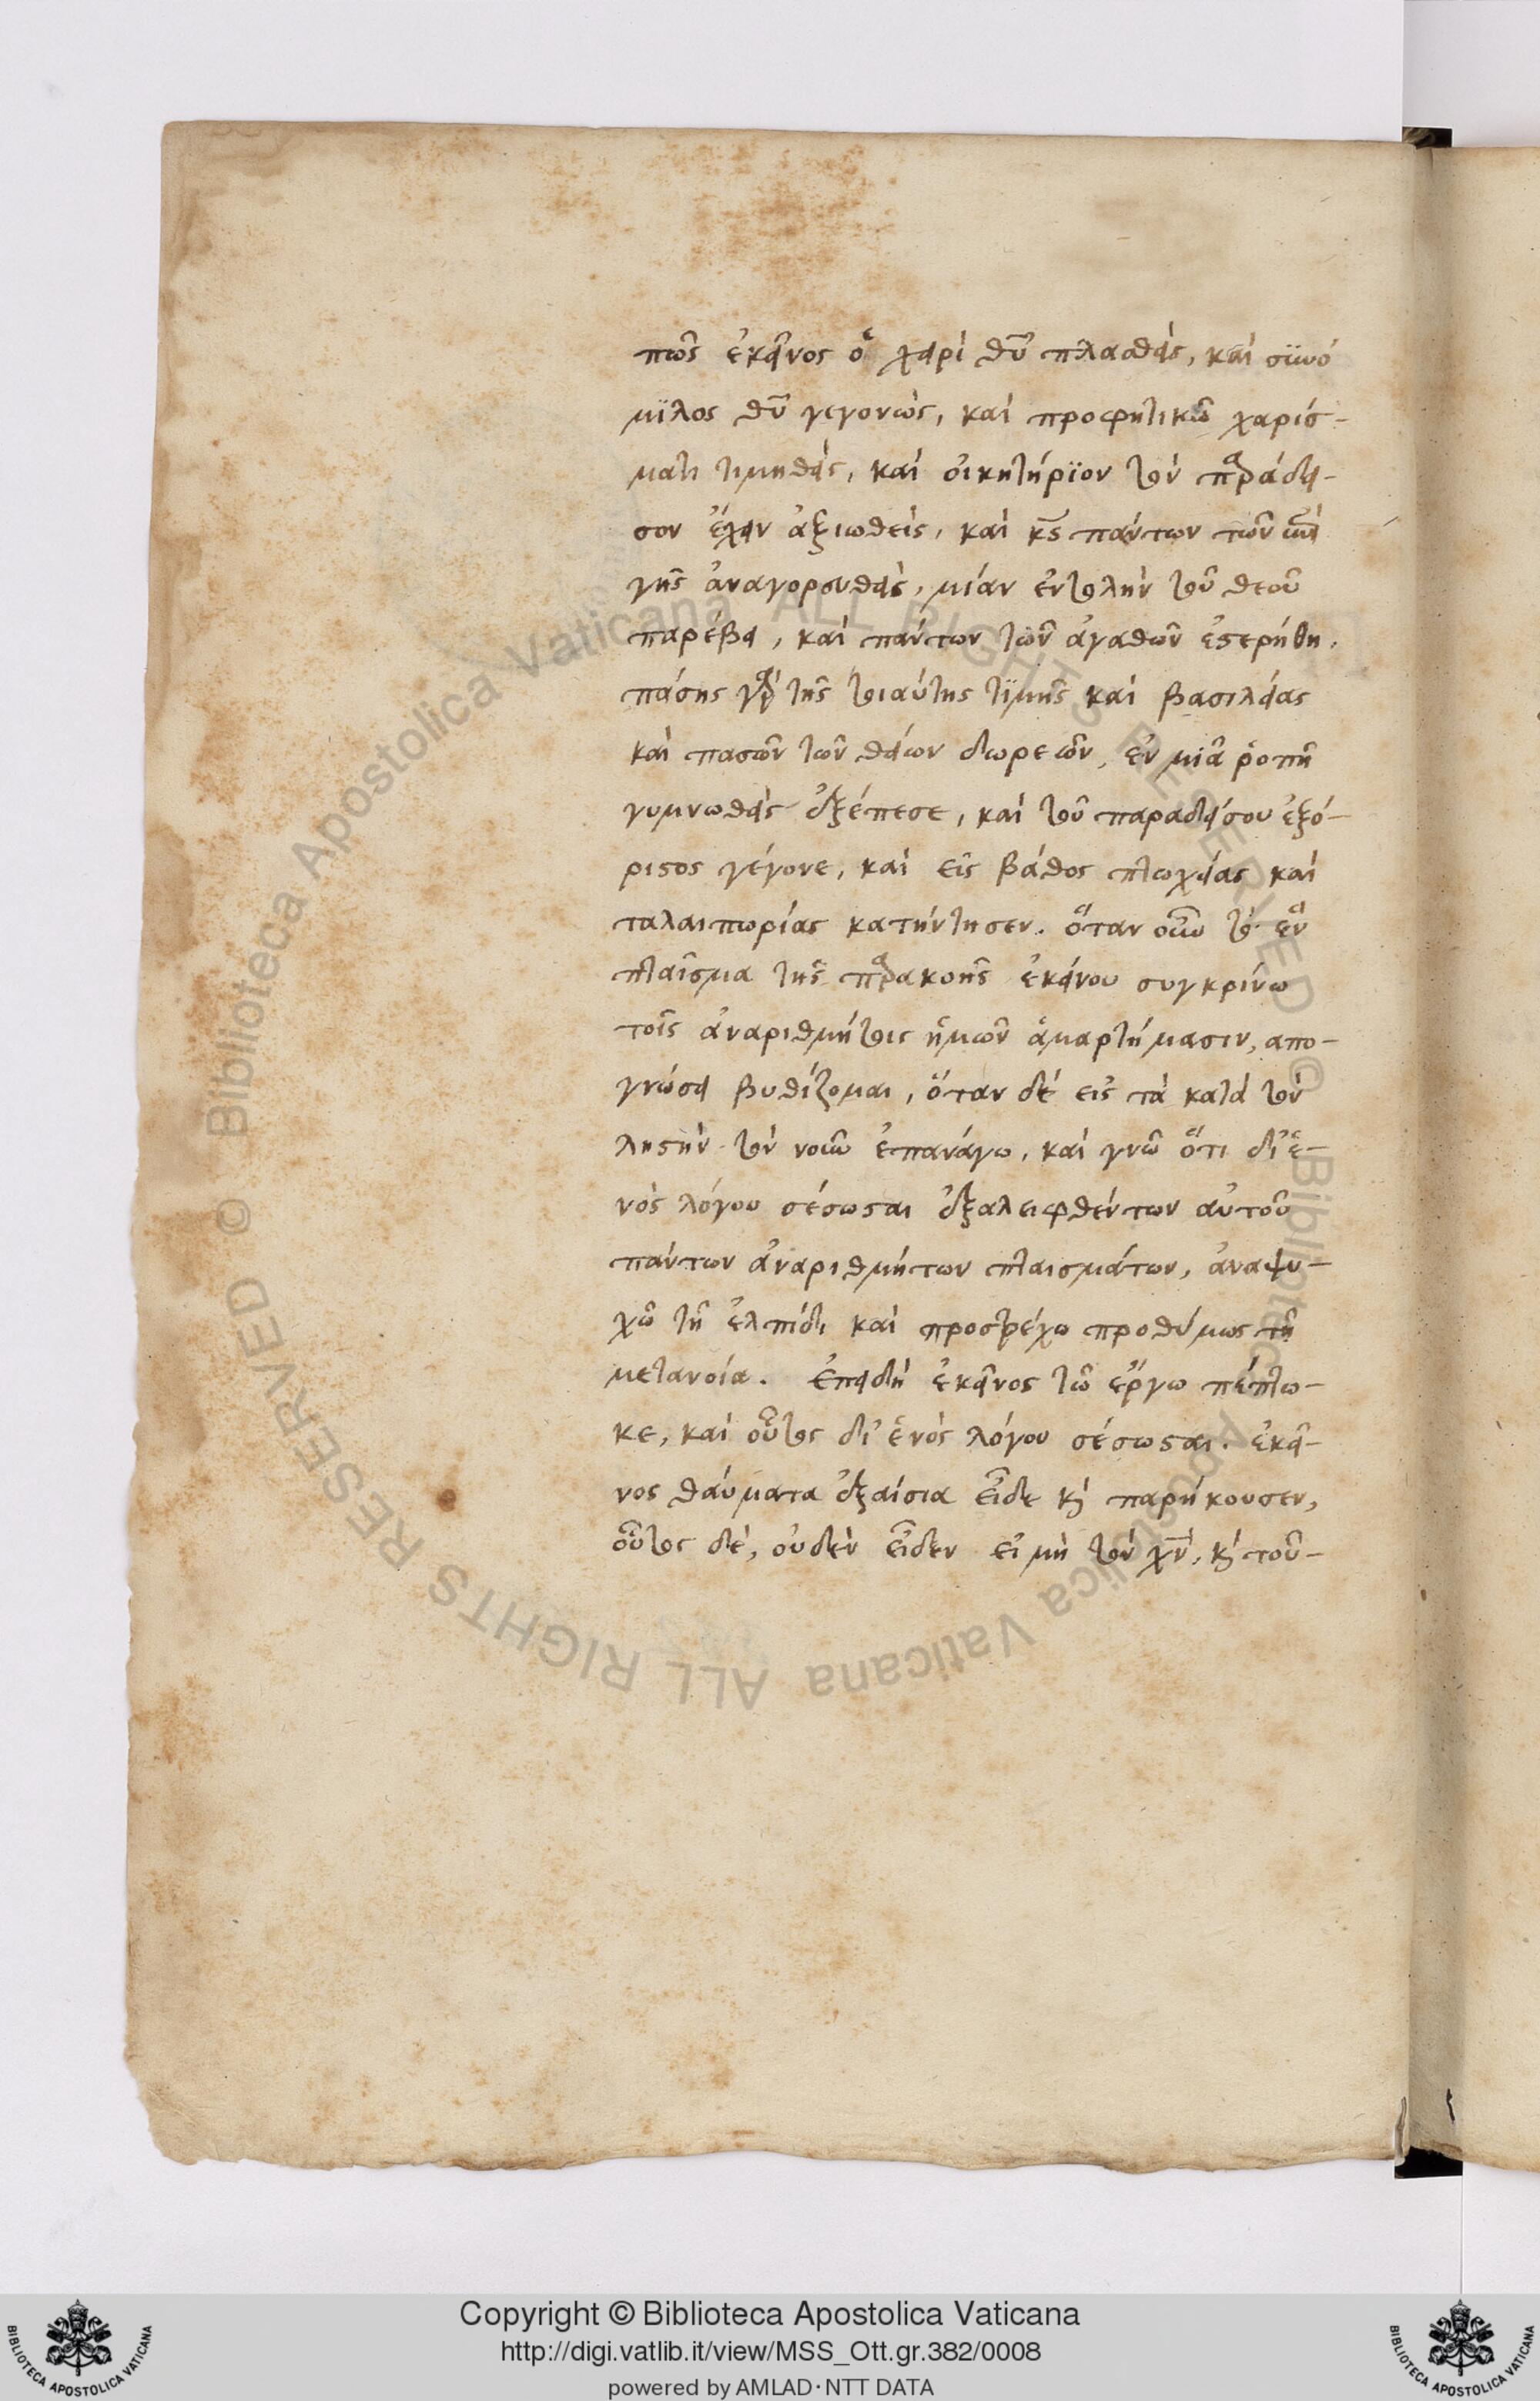 πῶς ἐκεῖνος ὁ χειρὶ θῦ πλασθεὶς, καὶ συνό
μϊλος θῦ γεγονὼς, καὶ προφητικῶ χαρίσ-
ματι τιμηθεὶς, καὶ οἰκητήρϊον τὸν πράδει-
σον ἔχειν ἀξιωθεὶς, καὶ κς πάντων τῶν ἐπὶ
γῆς ἀναγορευθεὶς, μίαν ἐντολὴν τοῦ θεοῦ
παρέβει, καὶ πάντων τῶν ἀγαθῶν ἐστερήθη.
πάσης γὰρ τῆς τοιαύτης τϊμῆς καὶ βασιλείας
καὶ πασῶν τῶν θείων δωρεῶν, ἐν μιᾶ ῥοπῆ
γυμνωθεὶς ἐξέπεσε, καὶ τοῦ παραδείσου ἐξό-
ριστος γέγονε, καὶ εἰς βάθος πτωχείας καὶ
ταλαιπωρίας κατήντησεν. ὅταν οὖν τὸ ἓν
πταῖσμα τῆς πρακοῆς ἐκείνου συγκρίνω
τοῖς ἀναριθμήτοις ἡμῶν ἁμαρτήμασιν, απο-
γνώσει βυθίζομαι, ὅταν δὲ εἰς τὰ κατὰ τὸν
ληστὴν τὸν νοῦν ἐπανάγω, καὶ γνῶ ὅτι δι' ἑ-
νὸς λόγου σέσωσται ἐξαλειφθέντων αὐτοῦ
πάντων ἀναριθμήτων πταισμάτων, ἀναψυ-
χῶ τῆ ἐλπίδι καὶ προστρέχω προθύμως τῆ
μετανοία. ἐπειδὴ ἐκεῖνος τῶ ἔργω πέπτω-
κε, καὶ οὗτος δι' ἑνὸς λόγου σέσωσται. ἐκεῖ-
νος θαύματα ἐξαίσια εἶδε κὶ παρήκουσεν,
οὗτος δὲ, οὐδὲν εἶδεν εἰ μὴ τὸν χν, κὶ τοῦ-
Copyright © Biblioteca Apostolica Vaticana
http://digi.vatlib.it/view/MSS_Ott.gr.382/0008
powered by AMLAD·NTT DATA
BIBLIOTECA APOSTOLICA VATICANA
BIBLIOTECA APOSTOLICA VATICANA
© Biblioteca Apostolica Vaticana ALL RIGHTS RESERVED © Biblioteca Apostolica Vaticana ALL RIGHTS RESERVED